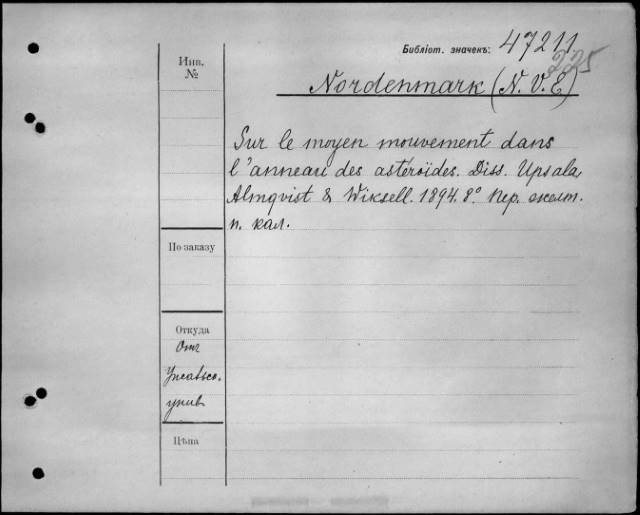 Библіот. значекъ: 47211
225
Инв.
№
Nordenmark (N. V. E)
Sur le moyen mouvement dans
l'anneau des astéroïdes. Diss. Upsala,
Almqvist & Wiksell. 1894. 8° Пер. желт.
п. кал.
По заказу
Откуда
Отъ
Упсальск.
унив
Цѣна